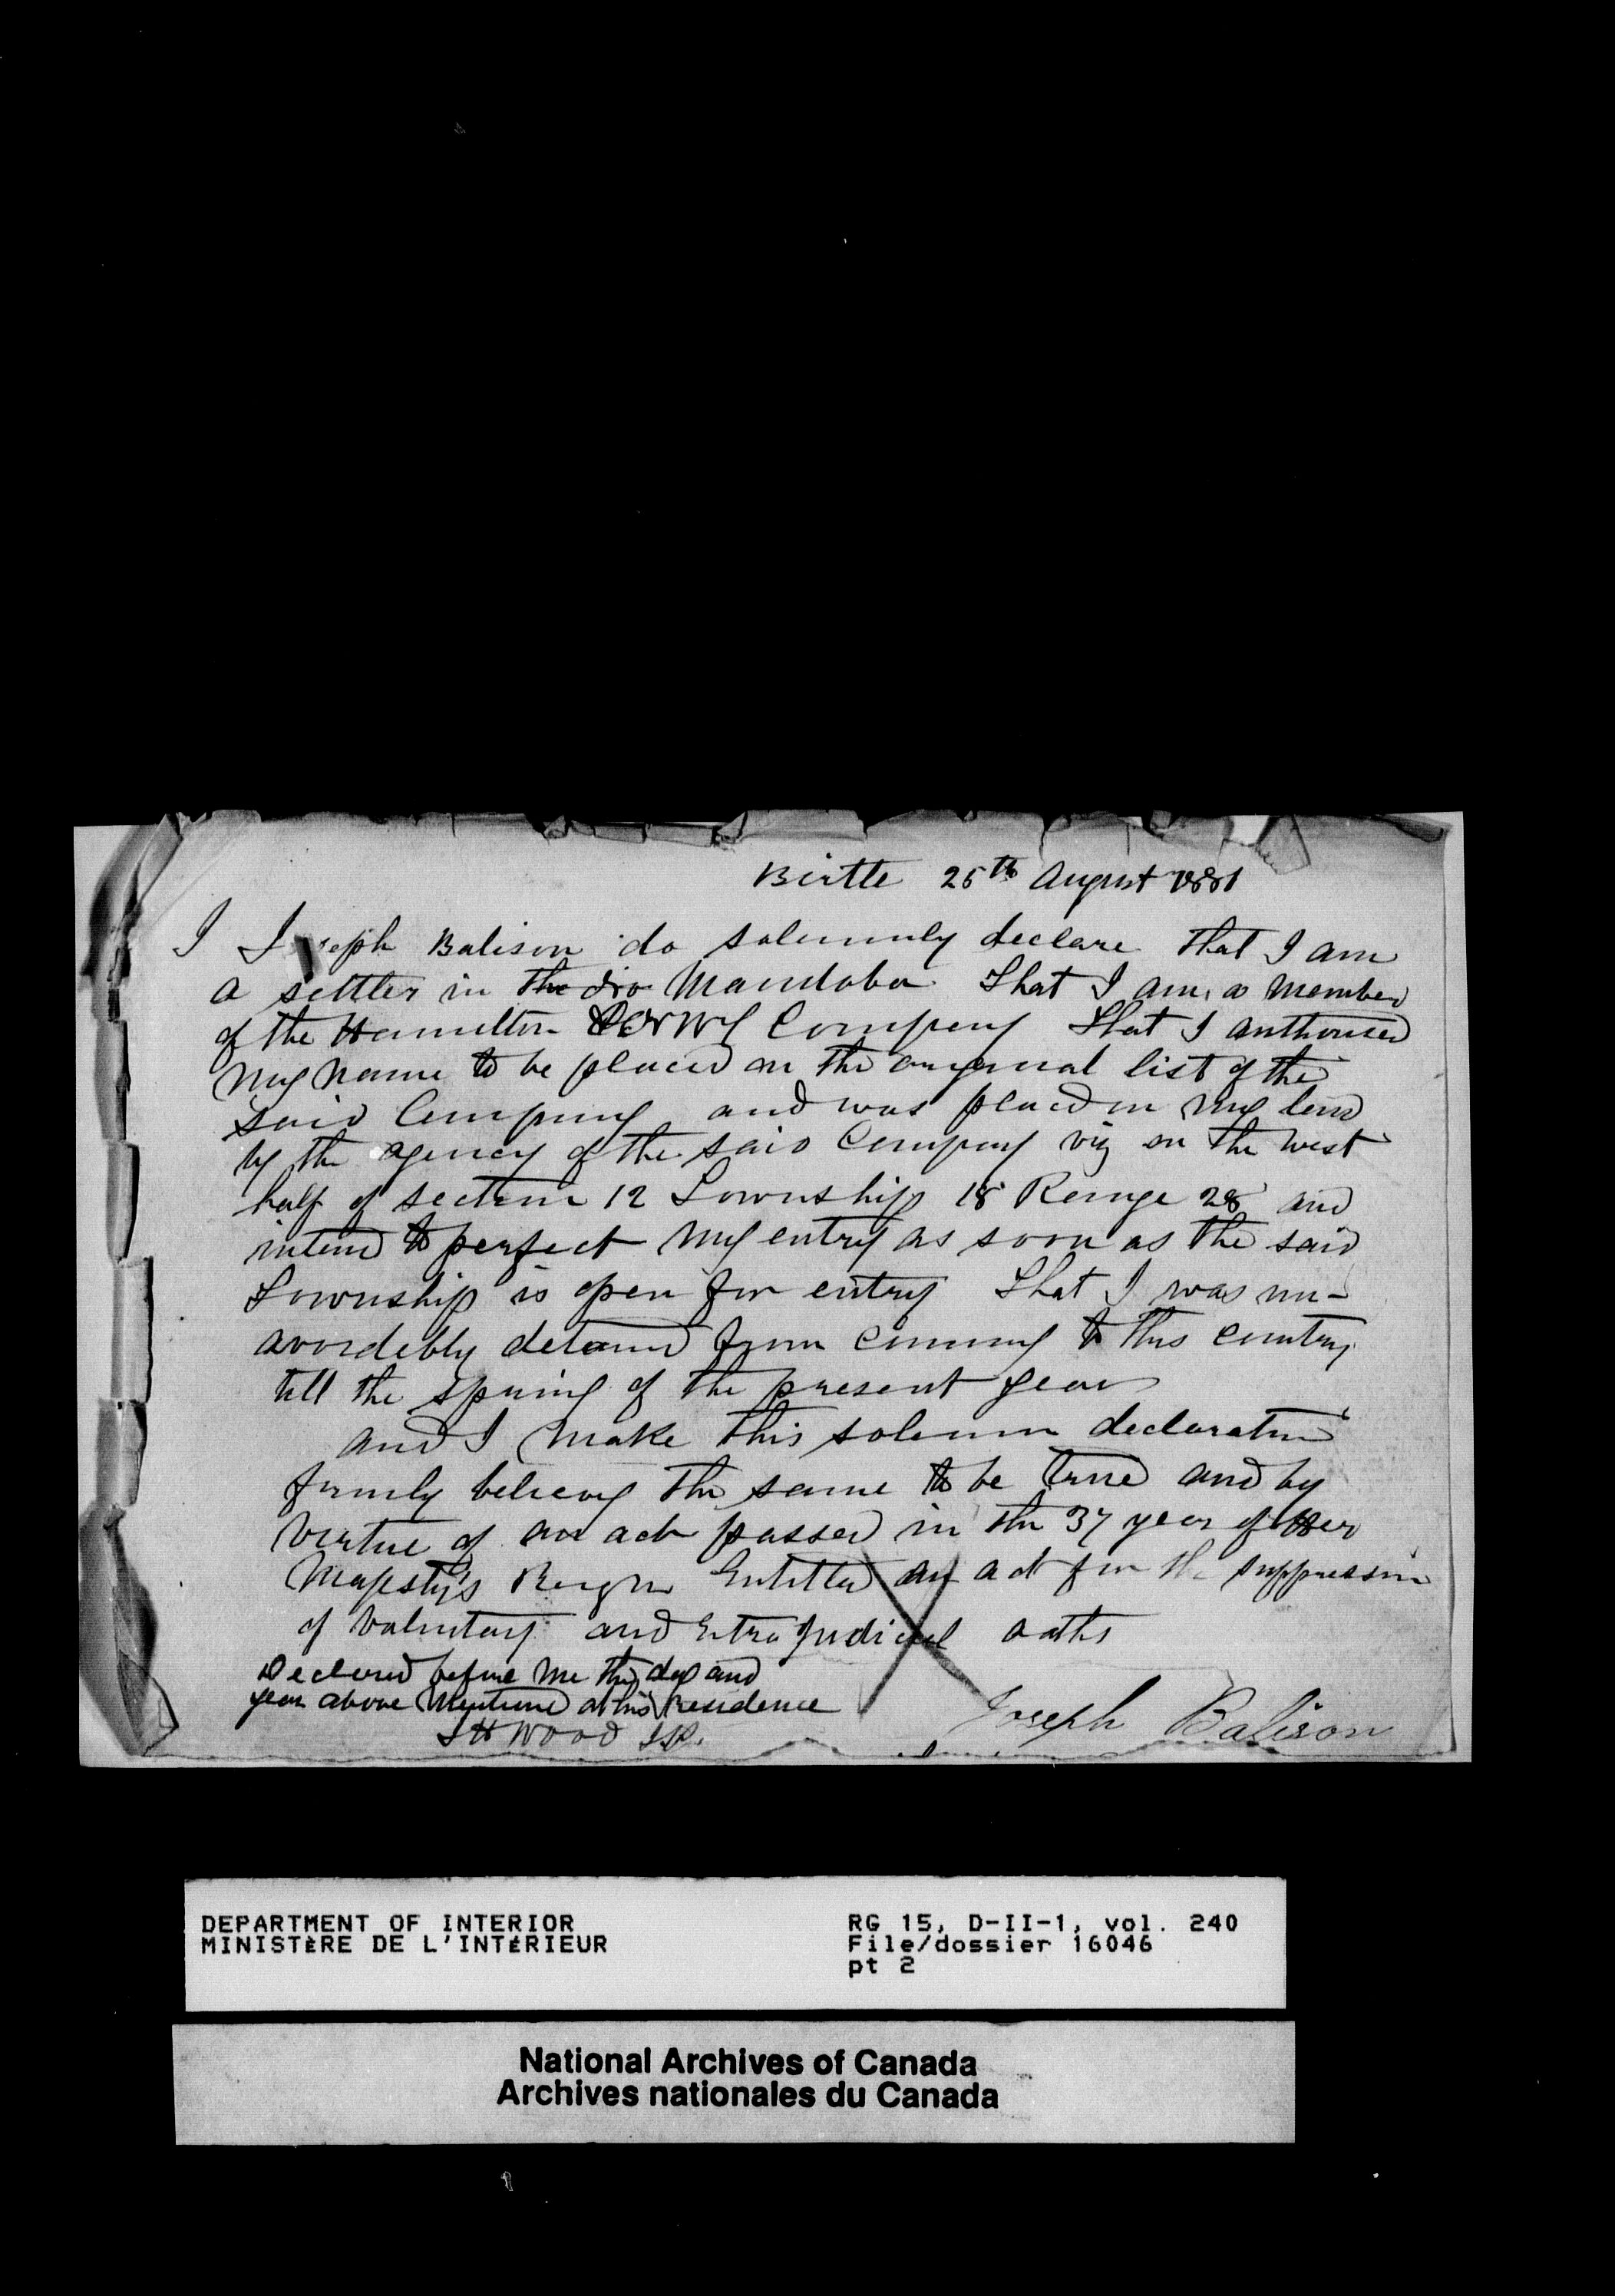 Birtle 25th August 1881
I Joseph Balison do solemnly declare that I am
a settler in the Manitoba That I am a member
of the Hamilton Company That I authorised
my name to be placed on the original list of the
said Company and was placed on my land
by the agency of the said Company viz on the west
half of section 12 Township 18 Range 28 and
intend to perfect my entry as soon as the said
Township is open for entry That I was un-
avoidebly detained from coming to this country
till the spring of the present year
and I make this solemn declaration
firmly believing the same to be true and by
virtue of an act passed in the 37 year of Her
Majesty's Reign Entitled an act for the suppression
of voluntary and Extra Judicial oaths
Declared before me this day and
year above Mentioned at his Residence
Wood J.P.
Joseph Balison
DEPARTMENT OF INTERIOR
MINISTÈRE DE L'INTÉRIEUR
RG 15, D-II-1, vol. 240
File/dossier 16046
pt 2
National Archives of Canada
Archives nationales du Canada